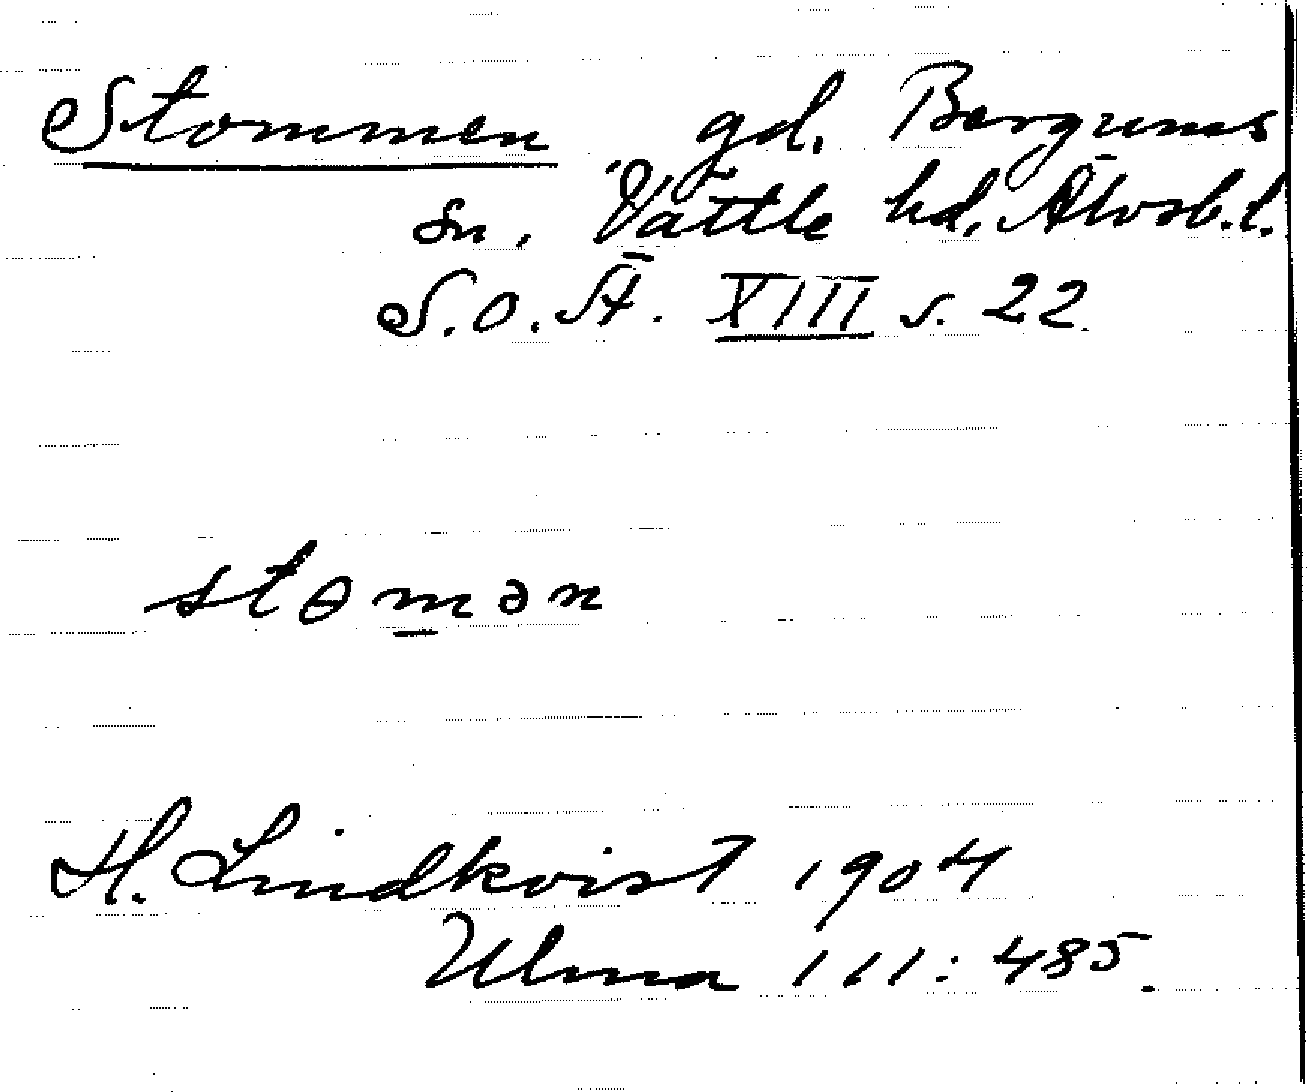 Stommen gd. Bergums
sn. Vättle hd. Älvsb.l.
S.O.Ä. XIII s. 22
stɵmən
H. Lindkvist 1904
Ulma 111:485.